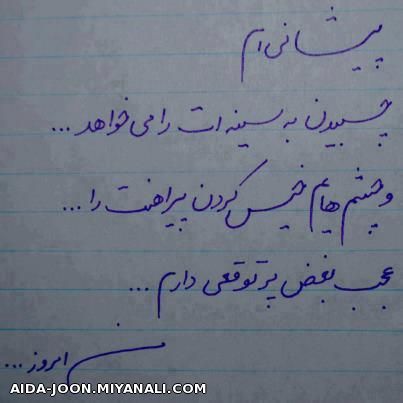 پیشانی ام
چسبیدن به سینه ات را می خواهد ...
و چشم هایم خیس کردن پیراهنت را ...
عجب بغض پر توقعی دارم ...
من امروز ...
AIDA-JOON.MIYANALI.COM